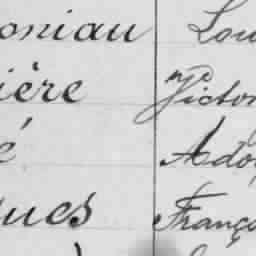 oniau Lou
ière Victor
é Ado
ques Franço